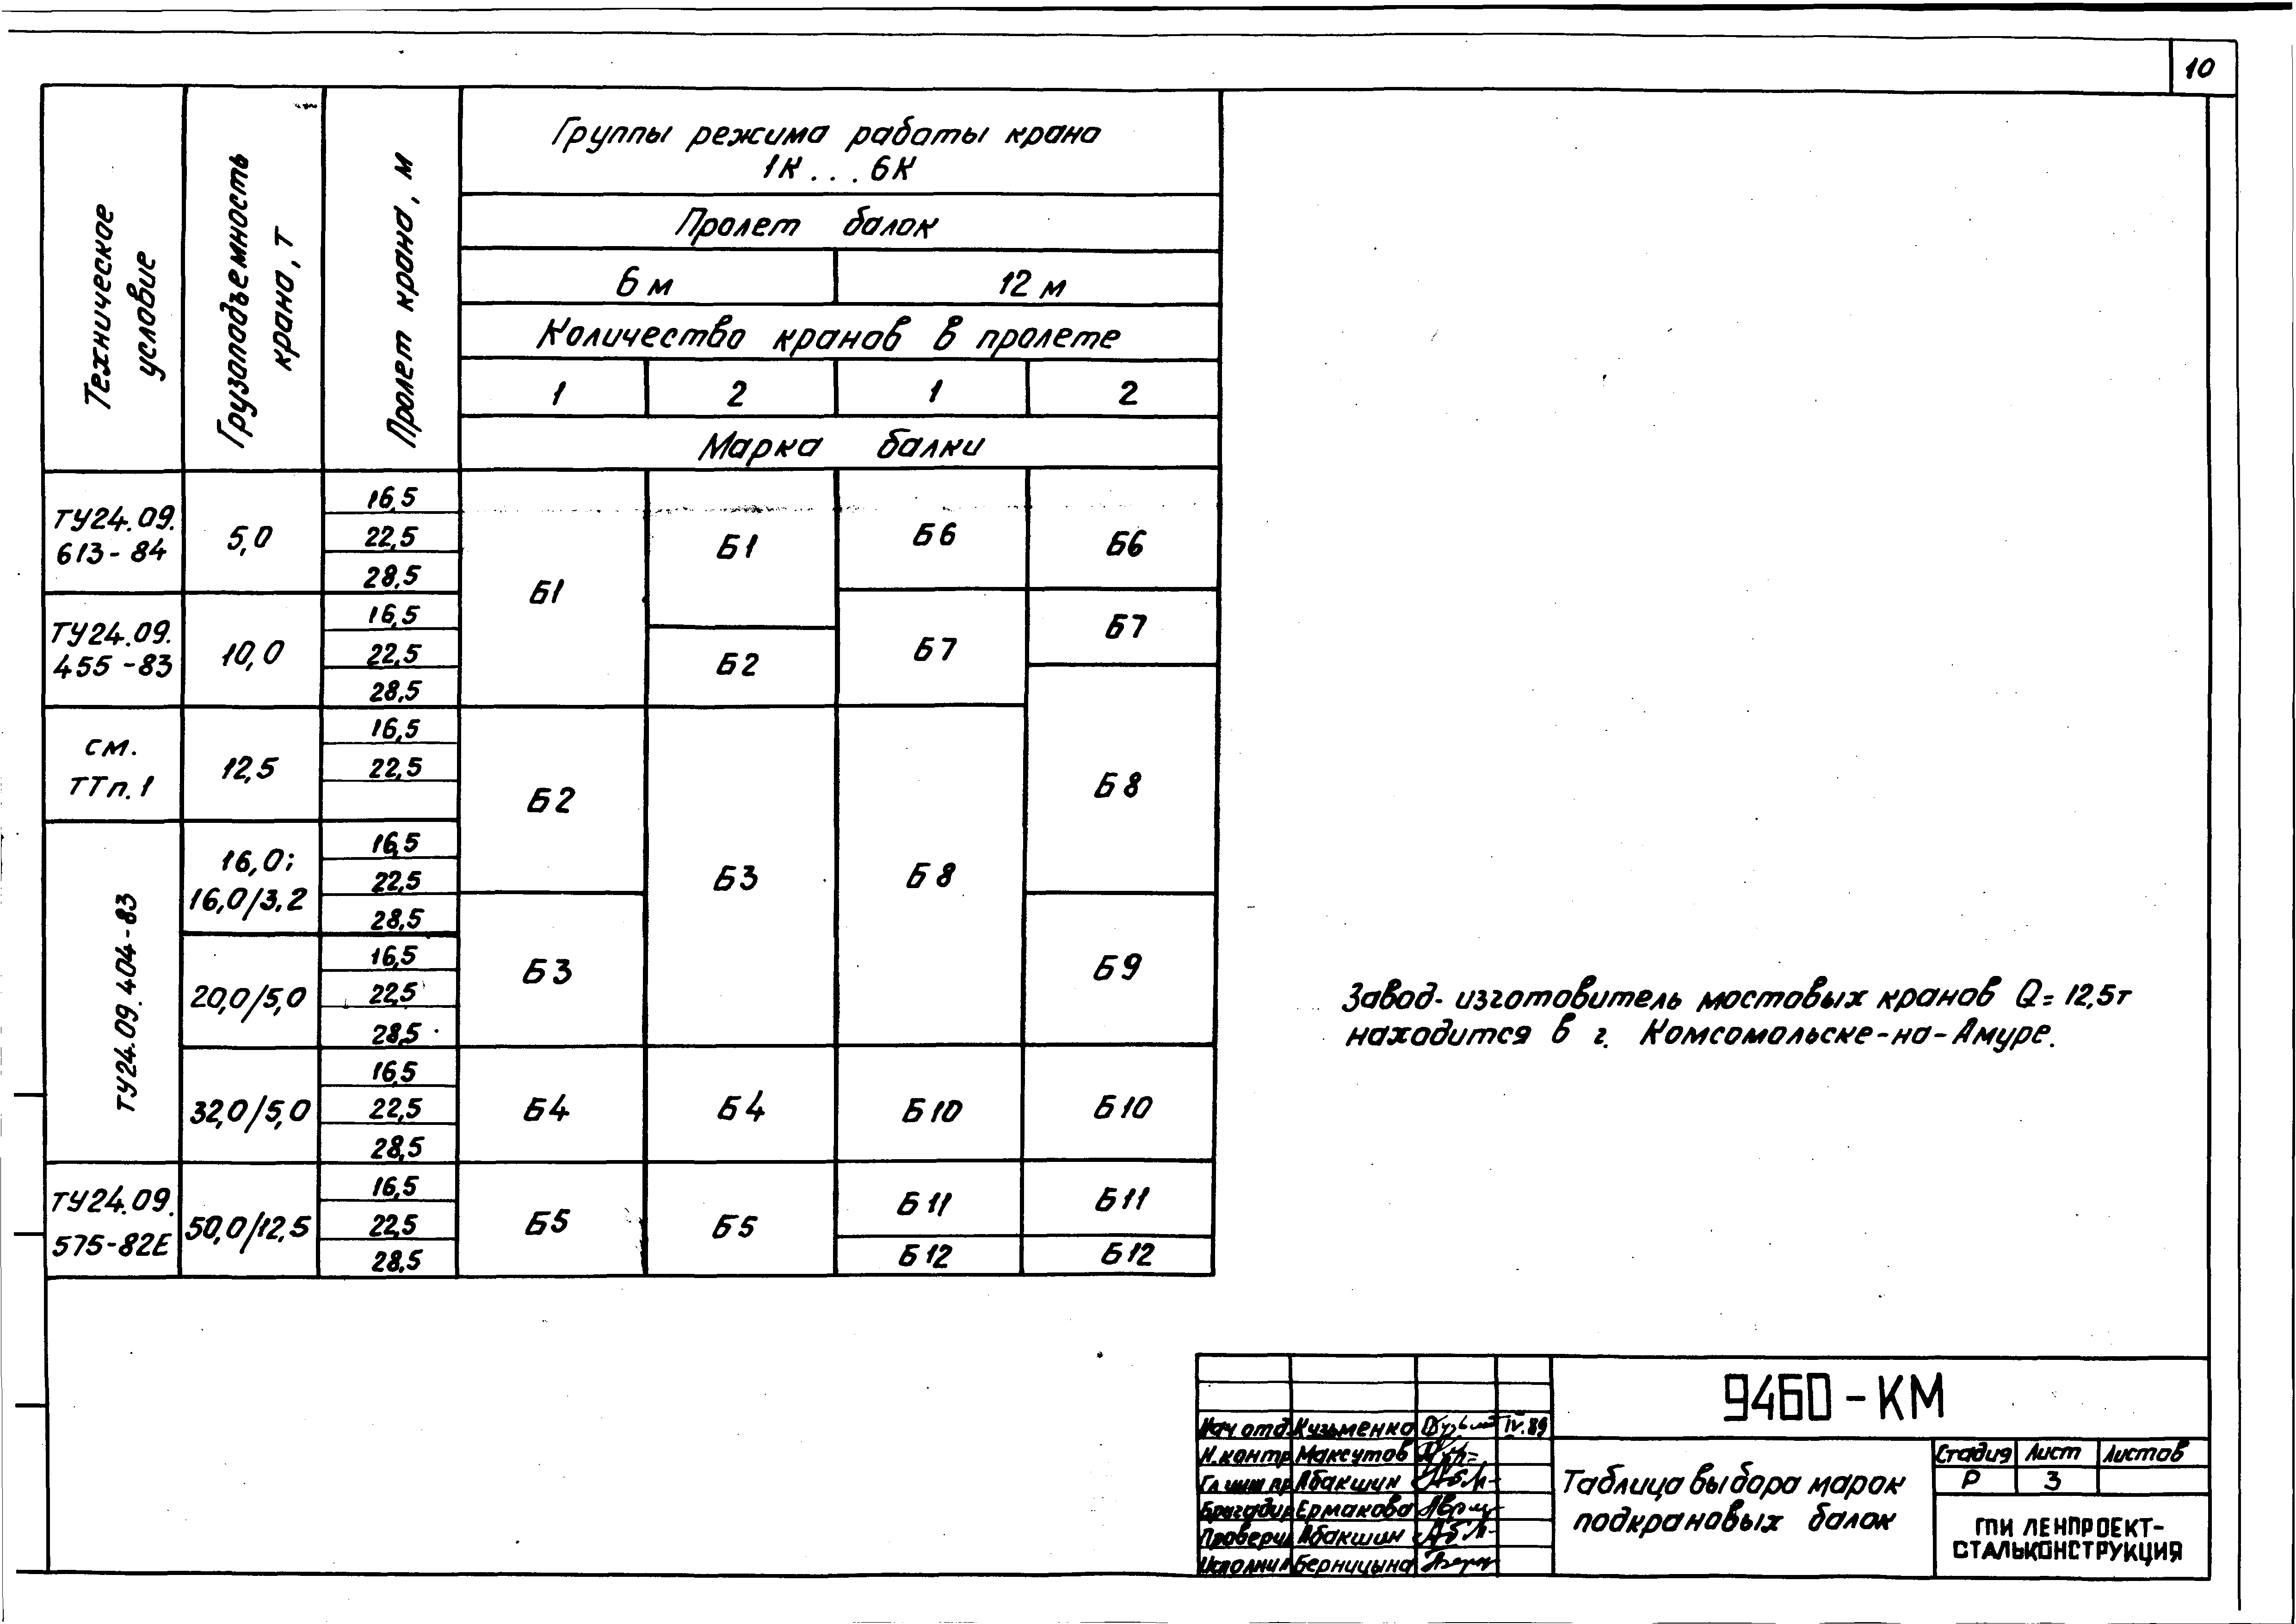 10
Техническое
условие
Грузоподъемность
крана, т
Пролет крана, м
Группы режима работы крана
1К...6К
Пролет балок
6 м
12 м
Количество кранов в пролете
1
2
1
2
Марка балки
ТУ24.09.
613-84
5,0
16,5
22,5
28,5
Б1
Б1
Б6
Б6
ТУ24.09.
455-83
10,0
16,5
22,5
28,5
Б2
Б7
Б7
см.
ТТп.1
12,5
16,5
22,5
Б2
Б3
Б8
Б8
ТУ24.09.404-83
16,0;
16,0/3,2
16,5
22,5
28,5
20,0/5,0
16,5
22,5
28,5
Б3
Б9
32,0/5,0
16,5
22,5
28,5
Б4
Б4
Б10
Б10
ТУ24.09.
575-82Е
50,0/12,5
16,5
22,5
28,5
Б5
Б5
Б11
Б11
Б12
Б12
Завод-изготовитель мостовых кранов Q=12,5т
находится в г. Комсомольске-на-Амуре.
9460-КМ
Нач отд. Кузьменко IV.89
Н.контр Максутов
Гл инж пр Абакшин
Бригадир Ермакова
Проверил Абакшин
Исполнил Берницына
Таблица выбора марок
подкрановых балок
Стадия Лист Листов
Р 3
ГПИ ЛЕНПРОЕКТ-
СТАЛЬКОНСТРУКЦИЯ